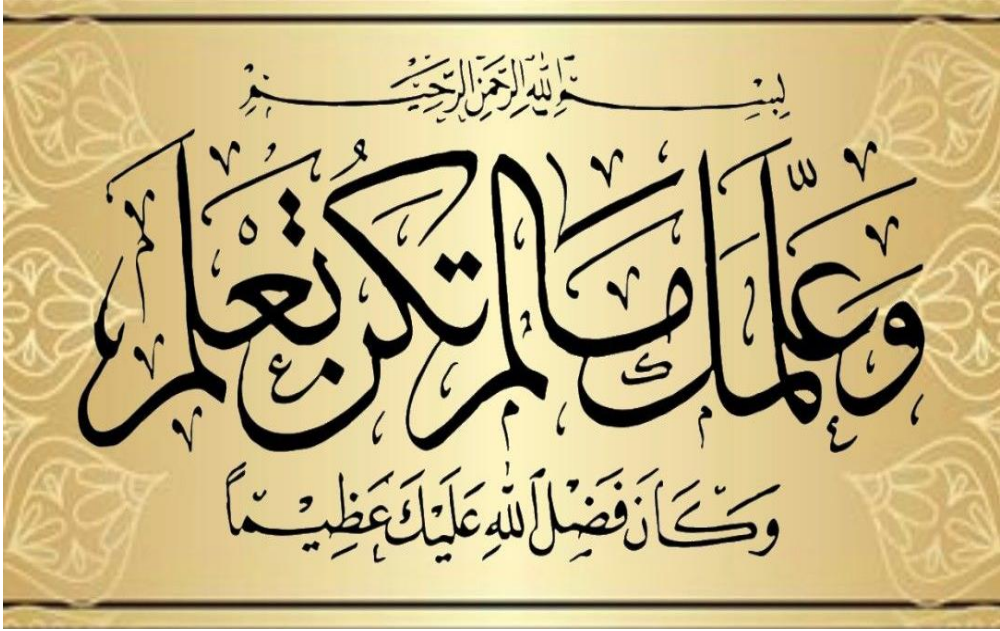 بِسْمِ اللّٰهِ الرَّحْمٰنِ الرَّحِيْمِ
وَعَلَّمَكَ مَا لَمْ تَكُنْ تَعْلَمُ
وَكَانَ فَضْلُ اللّٰهِ عَلَيْكَ عَظِيْمًا